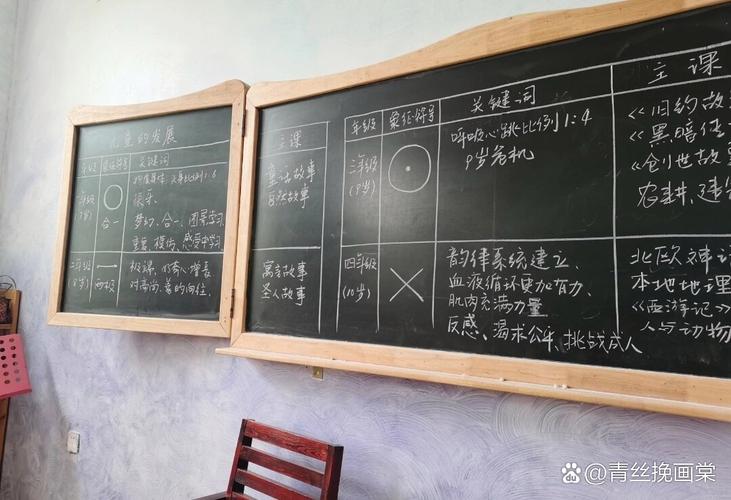 儿童的发展
年级 象征符号 关键词
一年级
(7岁)
合一
快乐、
梦幻、合一、图景学习
重复、模仿、感受中学习
二年级
(8岁)
两极
对高尚、美的向往、
主课
童话故事
自然故事
寓言故事
圣人故事
年级 象征符号 关键词 主课
三年级
(9岁)
呼吸心跳比例1:4
9岁危机
《旧约故
《黑暗
《创世故事
农耕、建
四年级
(10岁)
韵律系统建立、
血液循环更加有力、
肌肉充满力量
反感、渴求公平、挑战成人
北欧神话
本地地理
《西游记》
人与动物
青丝挽画棠